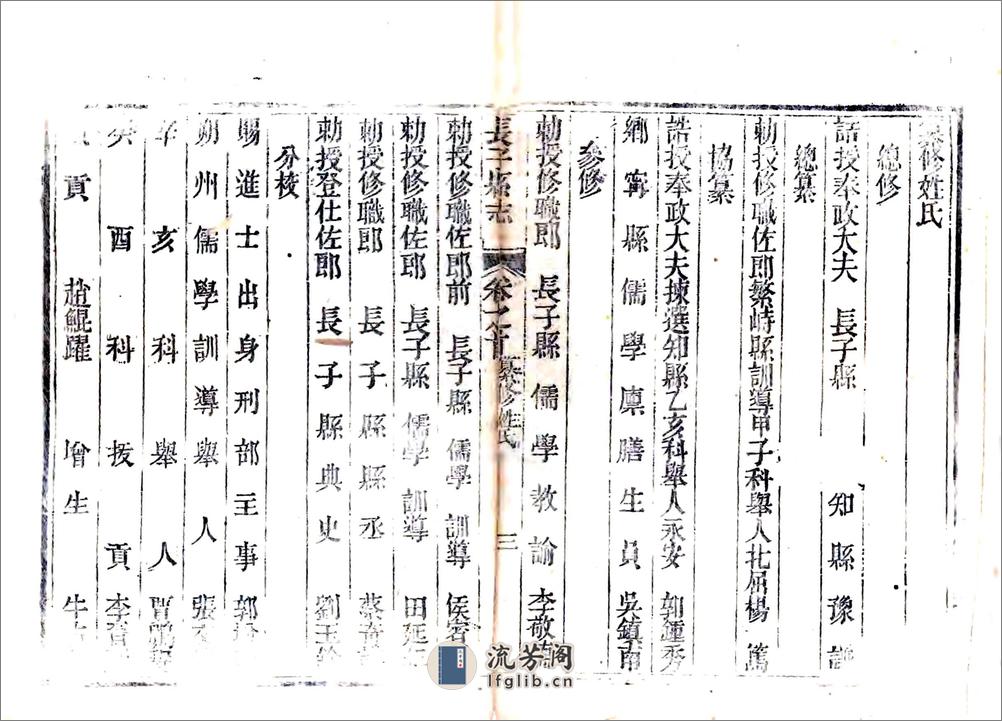 修姓氏
總修
誥授奉政大夫 長子縣 知縣豫謙
總纂
勅授修職佐郎繁峙縣訓導甲子科舉人北屈楊 篤
協纂
誥授奉政大夫揀選知縣乙亥科舉人永安 郭鍾秀
鄉寧縣儒學廩膳生員 吳鎮南
參修
勅授修職郎 長子縣儒學教諭 李敬
長子縣志 卷之首 纂修姓氏 三
勅授修職佐郎前 長子縣儒學訓導 侯
勅授修職佐郎 長子縣儒學訓導 田
勅授修職郎 長子縣縣丞 蔡
勅授登仕佐郎 長子縣典史 劉玉
分校
賜進士出身刑部主事 郭
朔州儒學訓導舉人 張
辛亥科舉人 賈
癸酉科拔貢 李
貢 趙鯤躍 增生 牛
流芳阁
lfglib.cn